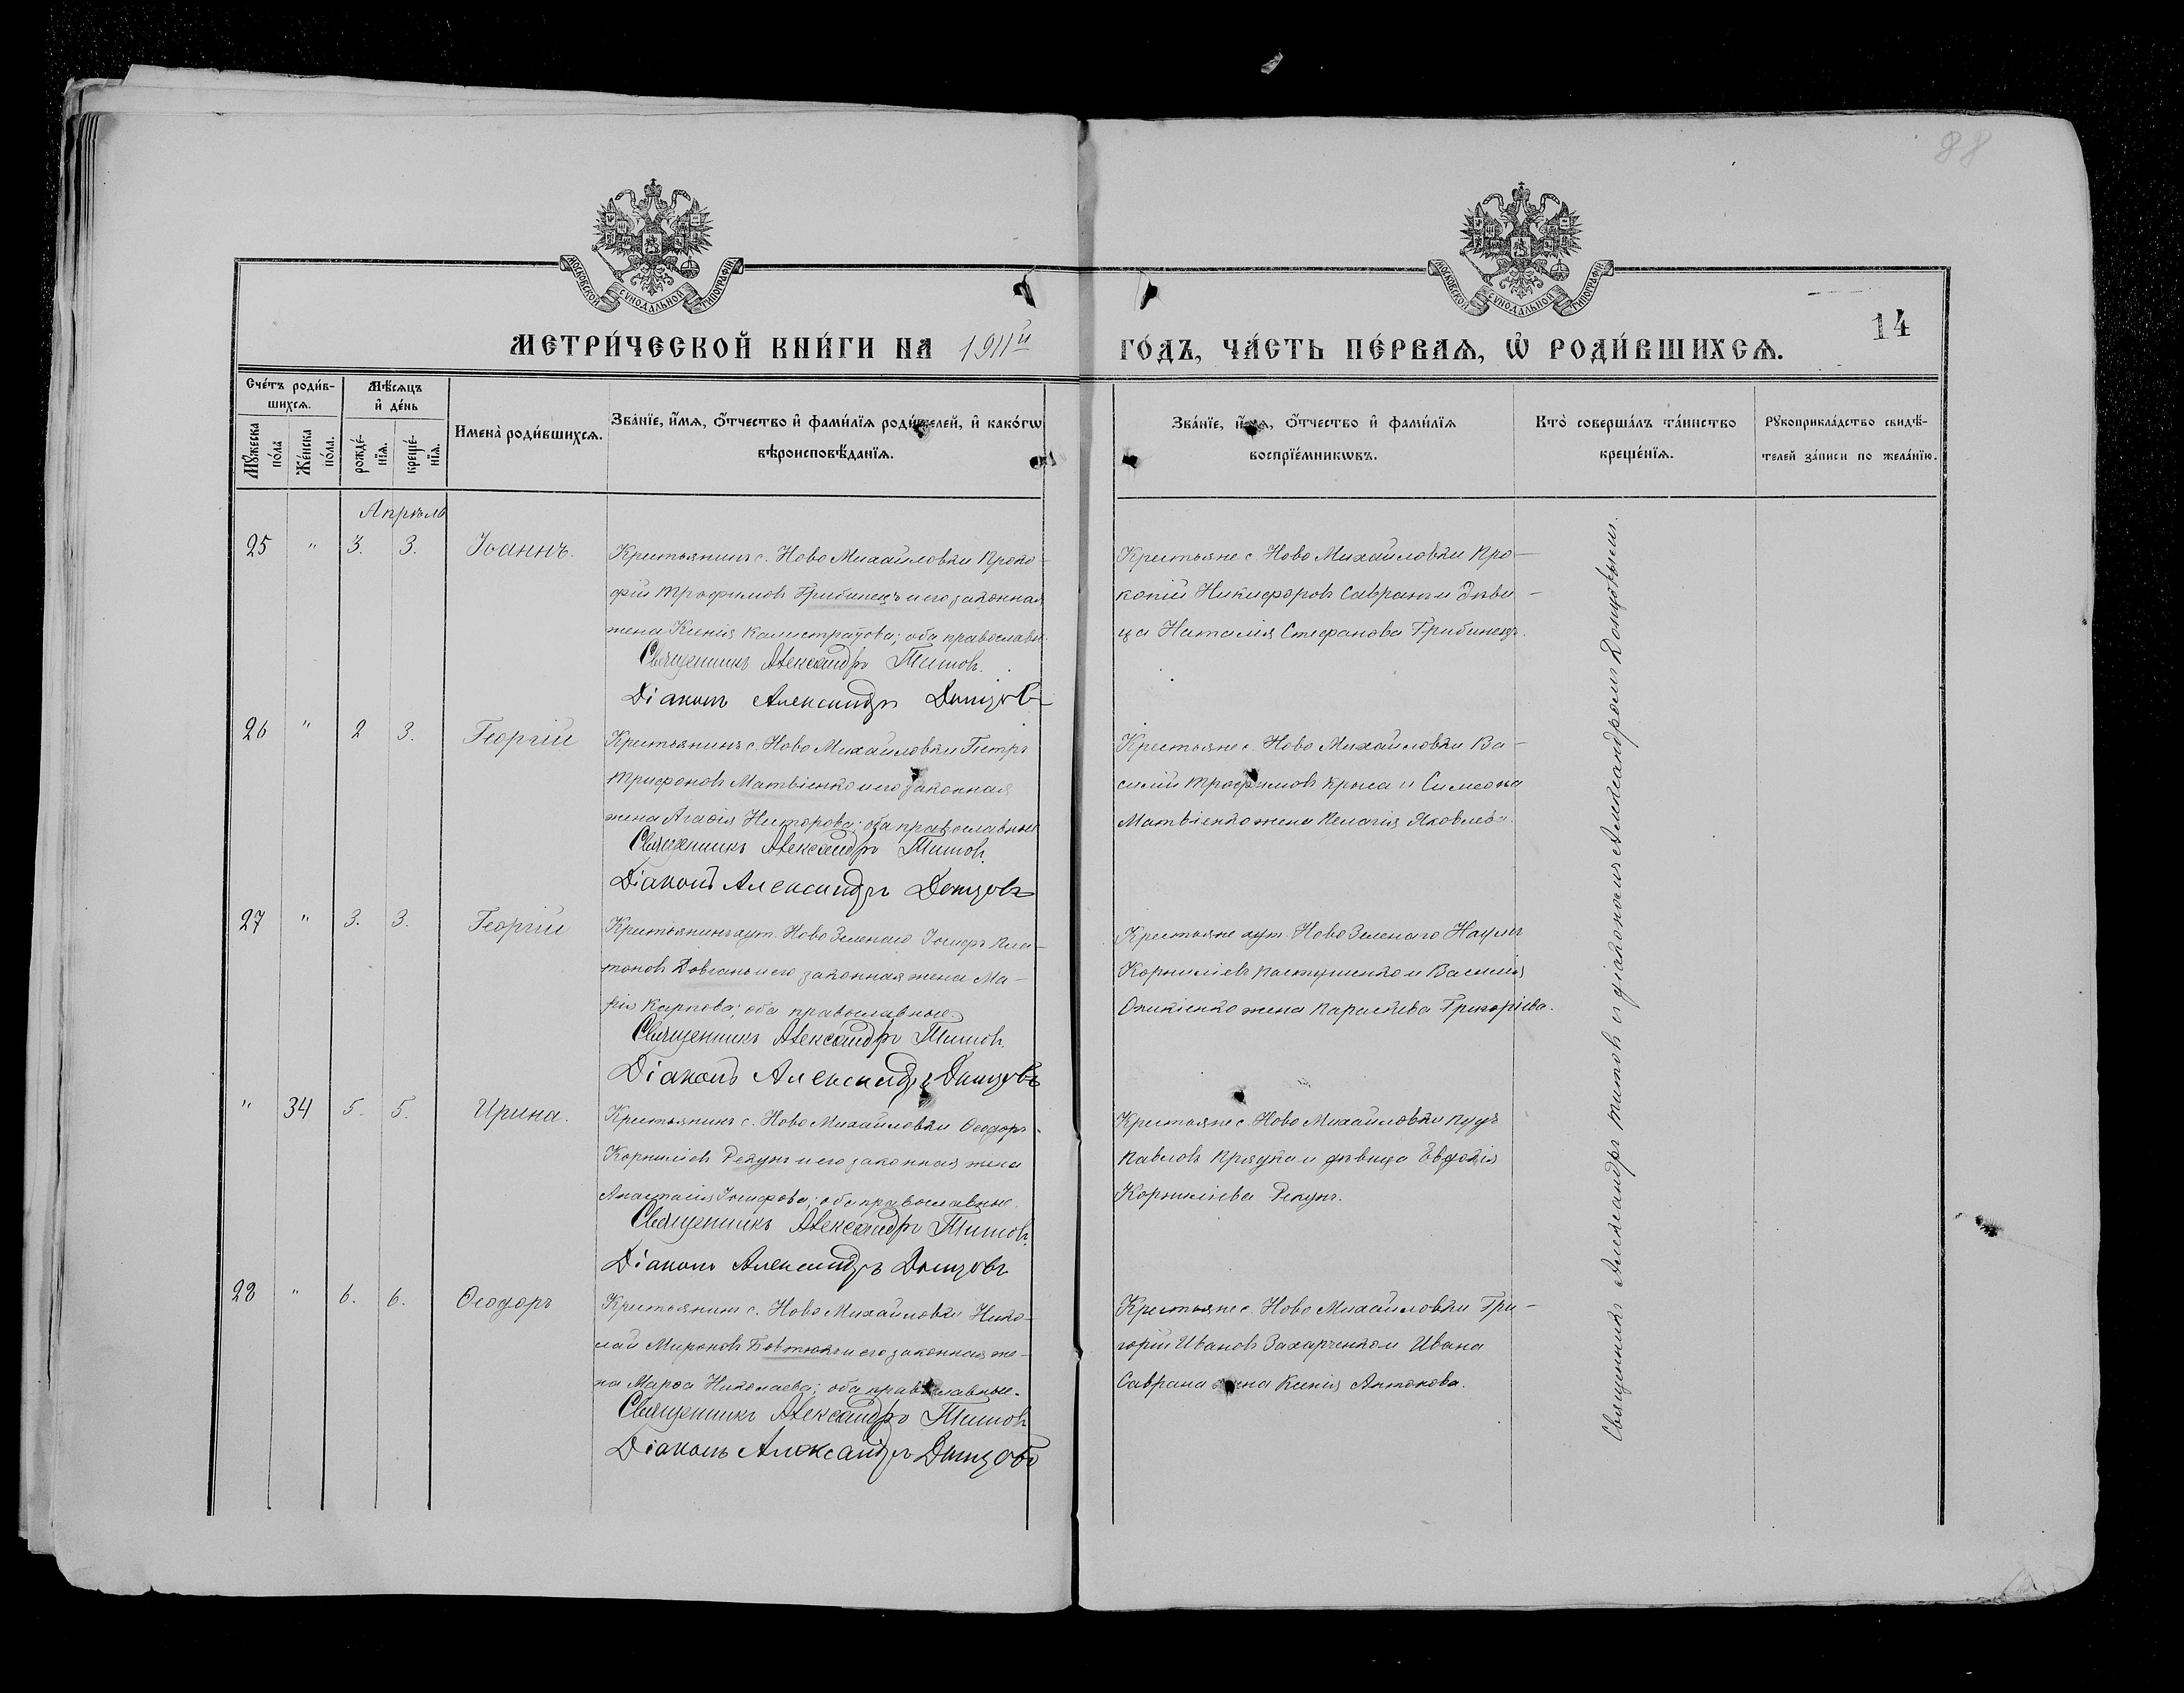 88
МОСКОВСКОЙ СѴНОДАЛЬНОЙ ТИПОГРАФІИ
МОСКОВСКОЙ СѴНОДАЛЬНОЙ ТИПОГРАФІИ
14
МЕТРИ́ЧЕСКОЙ КНИ́ГИ НА 1911й ГО́ДЪ, ЧА́СТЬ ПЕ́РВАѦ, Ѡ РОДИ́ВШИХСѦ.
Сче́тъ роди́в-
шихсѧ.
Мꙋ́жеска по́ла
Же́нска по́ла.
Мѣ́сѧцъ
и҆ де́нь
рожде́-
нїѧ.
креще́-
нїѧ.
Имена̀ роди́вшихсѧ.
Зва́нїе, и҆́мѧ, ѻ҆́тчество и҆ фами́лїѧ роди́телей, и҆ како́гѡ
вѣроисповѣ́данїѧ.
Зва́нїе, и҆́мѧ, ѻ҆́тчество и҆ фами́лїѧ
воспрїе́мникѡвъ.
Кто̀ соверша́лъ та́инство
креще́нїѧ.
Рꙋкоприкла́дство свидѣ́-
телей за́писи по жела́нїю.
Апрѣль
25 " 3. 3. Іоаннъ.
Крестьянинъ с. Ново Михайловки Проко-
фій Трофимовъ Грибинецъ и его законная
жена Ксенія Калистратова; оба православн.
Священникъ Александръ Титовъ.
Діаконъ Александръ Донцовъ
Крестьяне с. Ново Михайловки Про-
копій Никифоровъ Савранъ и дѣви-
ца Наталія Стефанова Грибинецъ.
26 " 2 3. Георгій
Крестьянинъ с. Ново Михайловки Петръ
Трифоновъ Матвіенко и его законная
жена Агаѳія Нисторова; оба православные
Священникъ Александръ Титовъ.
Діаконъ Александръ Донцовъ
Крестьяне с. Ново Михайловки Ва-
силій Трофимовъ Крыса и Симеона
Матвіенко жена Пелагія Яковлева.
27 " 3. 3. Георгій
Крестьянинъ хут. Ново Зеленаго Іосифъ Пла-
тоновъ Довгань и его законная жена Ма-
рія Карпова; оба православные.
Священникъ Александръ Титовъ.
Діаконъ Александръ Донцовъ
Крестьяне хут. Ново Зеленаго Наумъ
Корниліевъ Пастушенко и Василія
Оникіенко жена Параскева Григоріева.
" 34 5. 5. Ирина.
Крестьянинъ с. Ново Михайловки Ѳеодоръ
Корниліевъ Рекунъ и его законная жена
Анастасія Іосифова; оба православные.
Священникъ Александръ Титовъ.
Діаконъ Александръ Донцовъ
Крестьяне с. Ново Михайловки
Павловъ Прядка и дѣвица Евдокія
Корниліева Рекунъ.
28 " 6. 6. Ѳеодоръ
Крестьянинъ с. Ново Михайловки Нико-
лай Мироновъ Бовтюкъ и его законная же-
на Марѳа Николаева; оба православные.
Священникъ Александръ Титовъ
Діаконъ Александръ Донцовъ
Крестьяне с. Ново Михайловки Гри-
горій Ивановъ Захарченко и Ивана
Саврана жена Ксенія Антонова.
Священникъ Александръ Титовъ съ діакономъ Александромъ Донцовымъ.